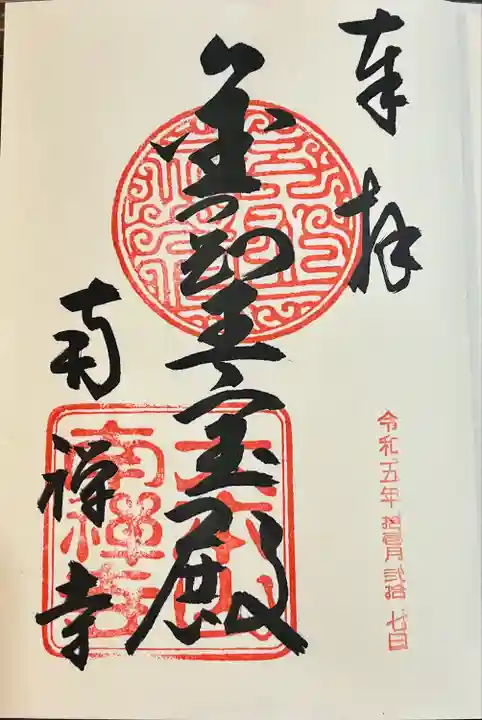 奉拝
金剛王宝殿
南禅寺
大本山
南禪寺
令和五年 拾壹月 弐拾 七日